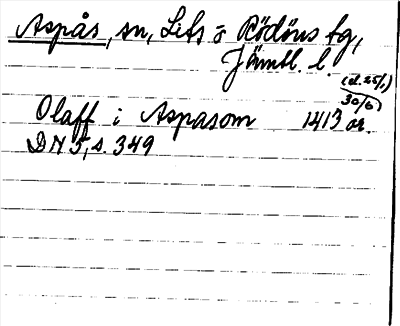 Aspås, sn, Lits o Rödöns tg,
Jämtl. l.
(d. 25/1)
30/6)
Olaff i Aspasom 1413 or.
DN 5, s. 349